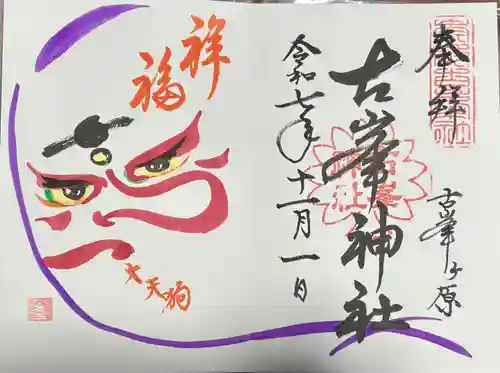 奉拝
古峯ヶ原
古峯神社
令和七年十一月一日
祥
福
大天狗